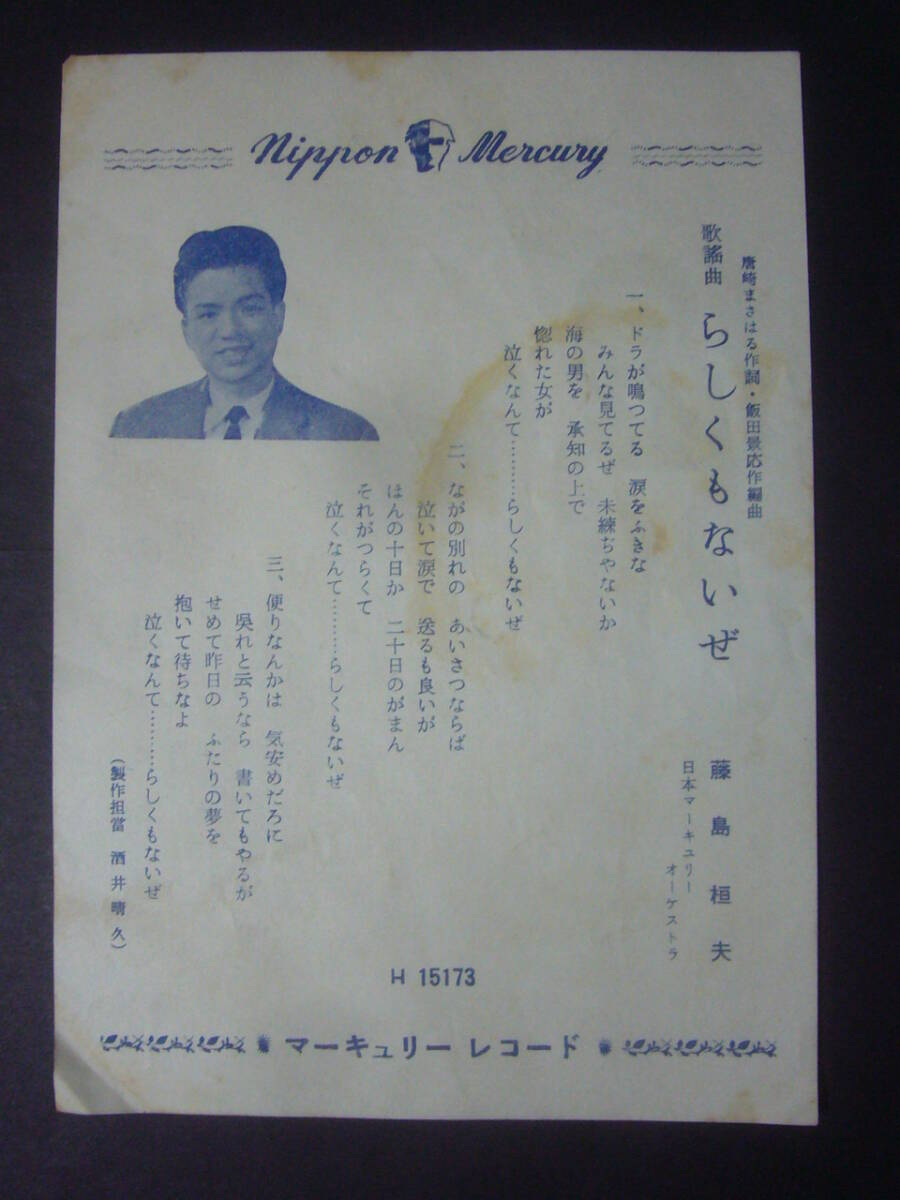 Nippon Mercury
唐崎まさはる作詞・飯田景応作編曲
歌謠曲 らしくもないぜ
藤島桓夫
日本マーキュリー
オーケストラ
一、ドラが鳴つてる 涙をふきな
みんな見てるぜ 未練ぢやないか
海の男を 承知の上で
惚れた女が
泣くなんて…………らしくもないぜ
二、ながの別れの あいさつならば
泣いて涙で 送るも良いが
ほんの十日か 二十日のがまん
それがつらくて
泣くなんて…………らしくもないぜ
三、便りなんかは 気安めだろに
呉れと云うなら 書いてもやるが
せめて昨日の ふたりの夢を
抱いて待ちなよ
泣くなんて…………らしくもないぜ
(製作担當 酒井晴久)
H 15173
マーキュリー レコード